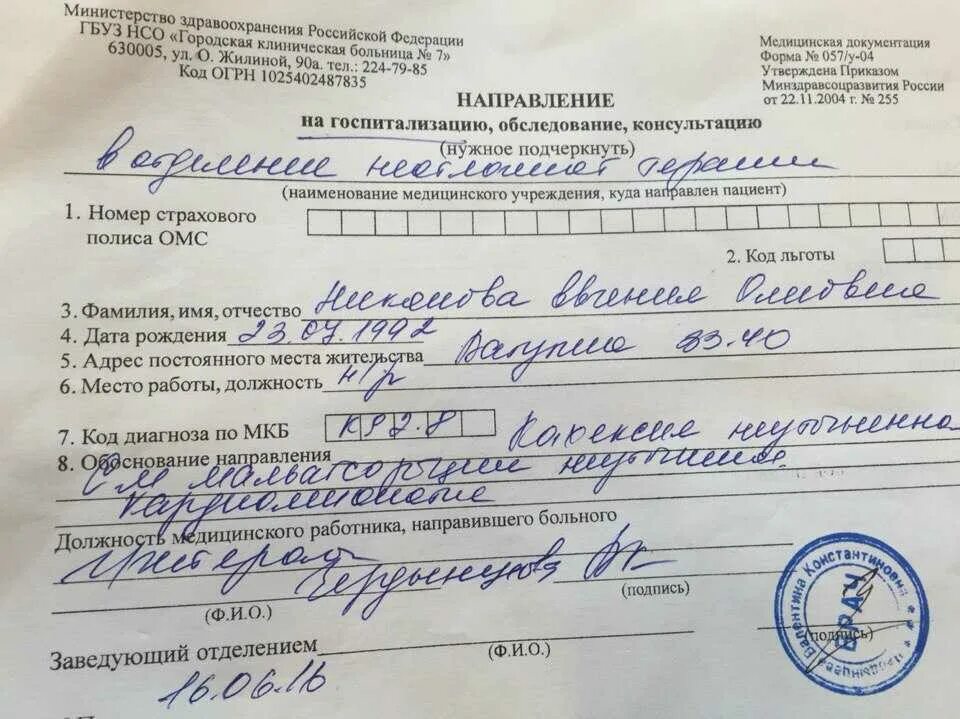 Министерство здравоохранения Российской Федерации
ГБУЗ НСО «Городская клиническая больница № 7»
630005, ул. О. Жилиной, 90а. тел.: 224-79-85
Код ОГРН 1025402487835
Медицинская документация
Форма № 057/у-04
Утверждена Приказом
Минздравсоцразвития России
от 22.11.2004 г. № 255
НАПРАВЛЕНИЕ
на госпитализацию, обследование, консультацию
(нужное подчеркнуть)
в отделение неотложной терапии
(наименование медицинского учреждения, куда направлен пациент)
1. Номер страхового
полиса ОМС
2. Код льготы
3. Фамилия, имя, отчество Евгения
4. Дата рождения 23.07.1992
5. Адрес постоянного места жительства 33-40
6. Место работы, должность н/р
7. Код диагноза по МКБ К92.8 Кахексия неуточненная
8. Обоснование направления
мальабсорбции
Должность медицинского работника, направившего больного
Чердынцева
(подпись)
(Ф.И.О.)
Заведующий отделением
(Ф.И.О.)
(подпись)
16.06.16
Валентина Константиновна
ВРАЧ
Чердынцева